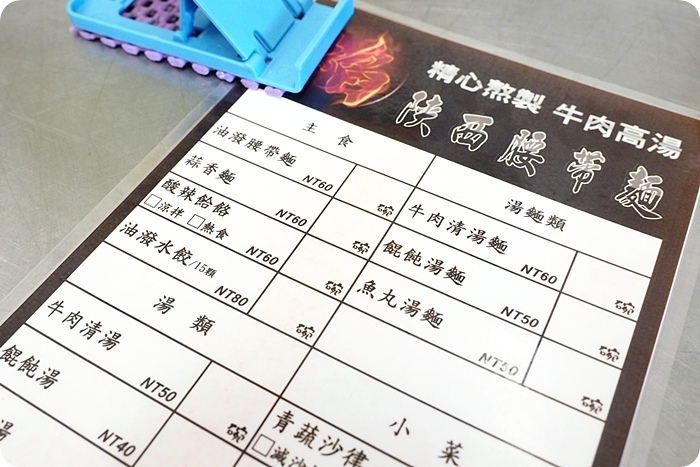 精心熬製 牛肉高湯
陝西腰帶麵
主食
油潑腰帶麵 NT60 碗
蒜香麵 NT60 碗
酸辣餄餎
□涼拌 □熱食 NT60 碗
油潑水餃/15顆 NT80 碗
湯類
牛肉清湯 NT50 碗
餛飩湯 NT40
湯
湯麵類
牛肉清湯麵 NT60 碗
餛飩湯麵 NT50 碗
魚丸湯麵 NT50 碗
小菜
青蔬沙律
□減沙